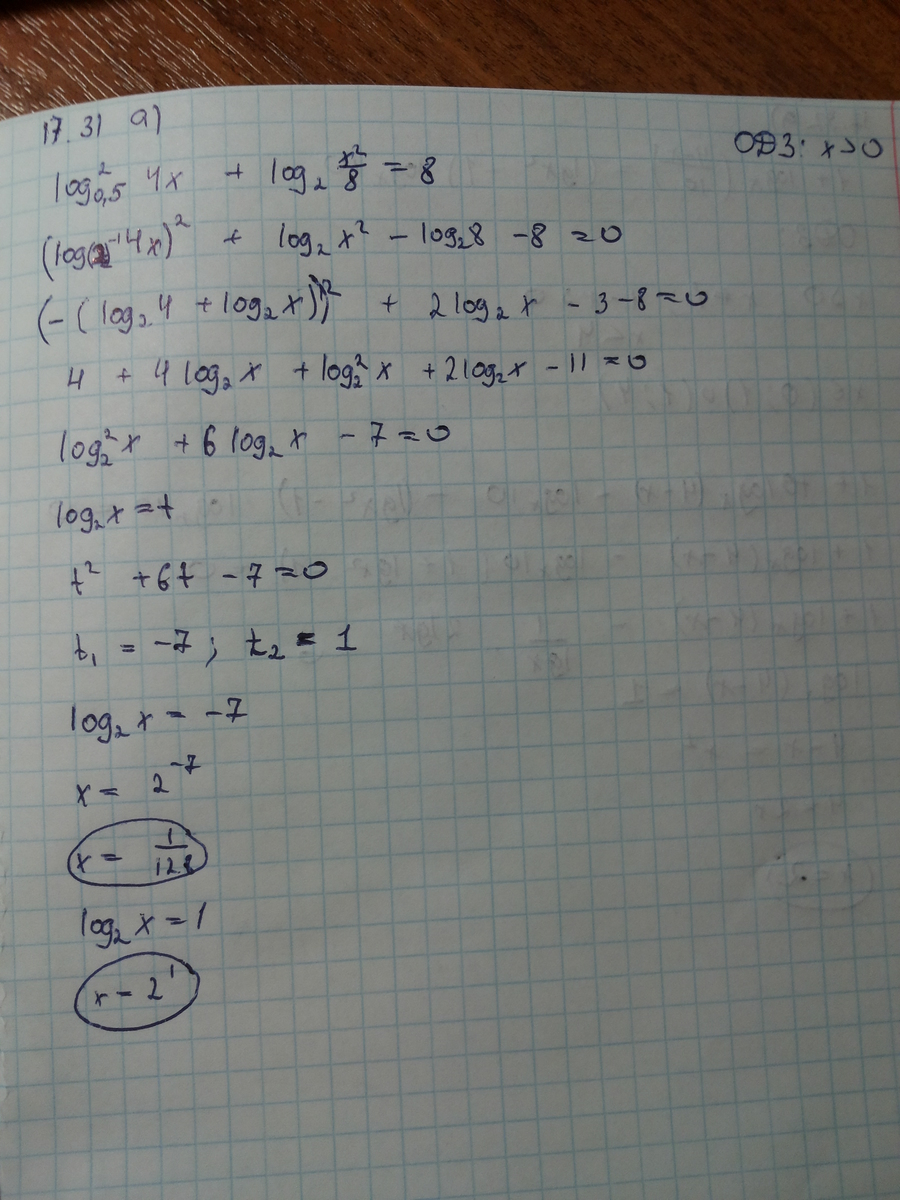 17.31 а)
ОДЗ: x>0
log²₀,₅ 4x + log₂ x²/8 = 8
(log₂⁻¹ 4x)² + log₂ x² - log₂8 - 8 = 0
(-(log₂ 4 + log₂ x))² + 2log₂ x - 3 - 8 = 0
4 + 4 log₂ x + log₂² x + 2log₂ x - 11 = 0
log₂² x + 6 log₂ x - 7 = 0
log₂ x = t
t² + 6t - 7 = 0
t₁ = -7; t₂ = 1
log₂ x = -7
x = 2⁻⁷
x = 1/128
log₂ x = 1
x = 2¹